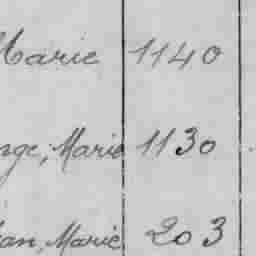 Marie 1140
nge, Marie 1130
an, Marie 203